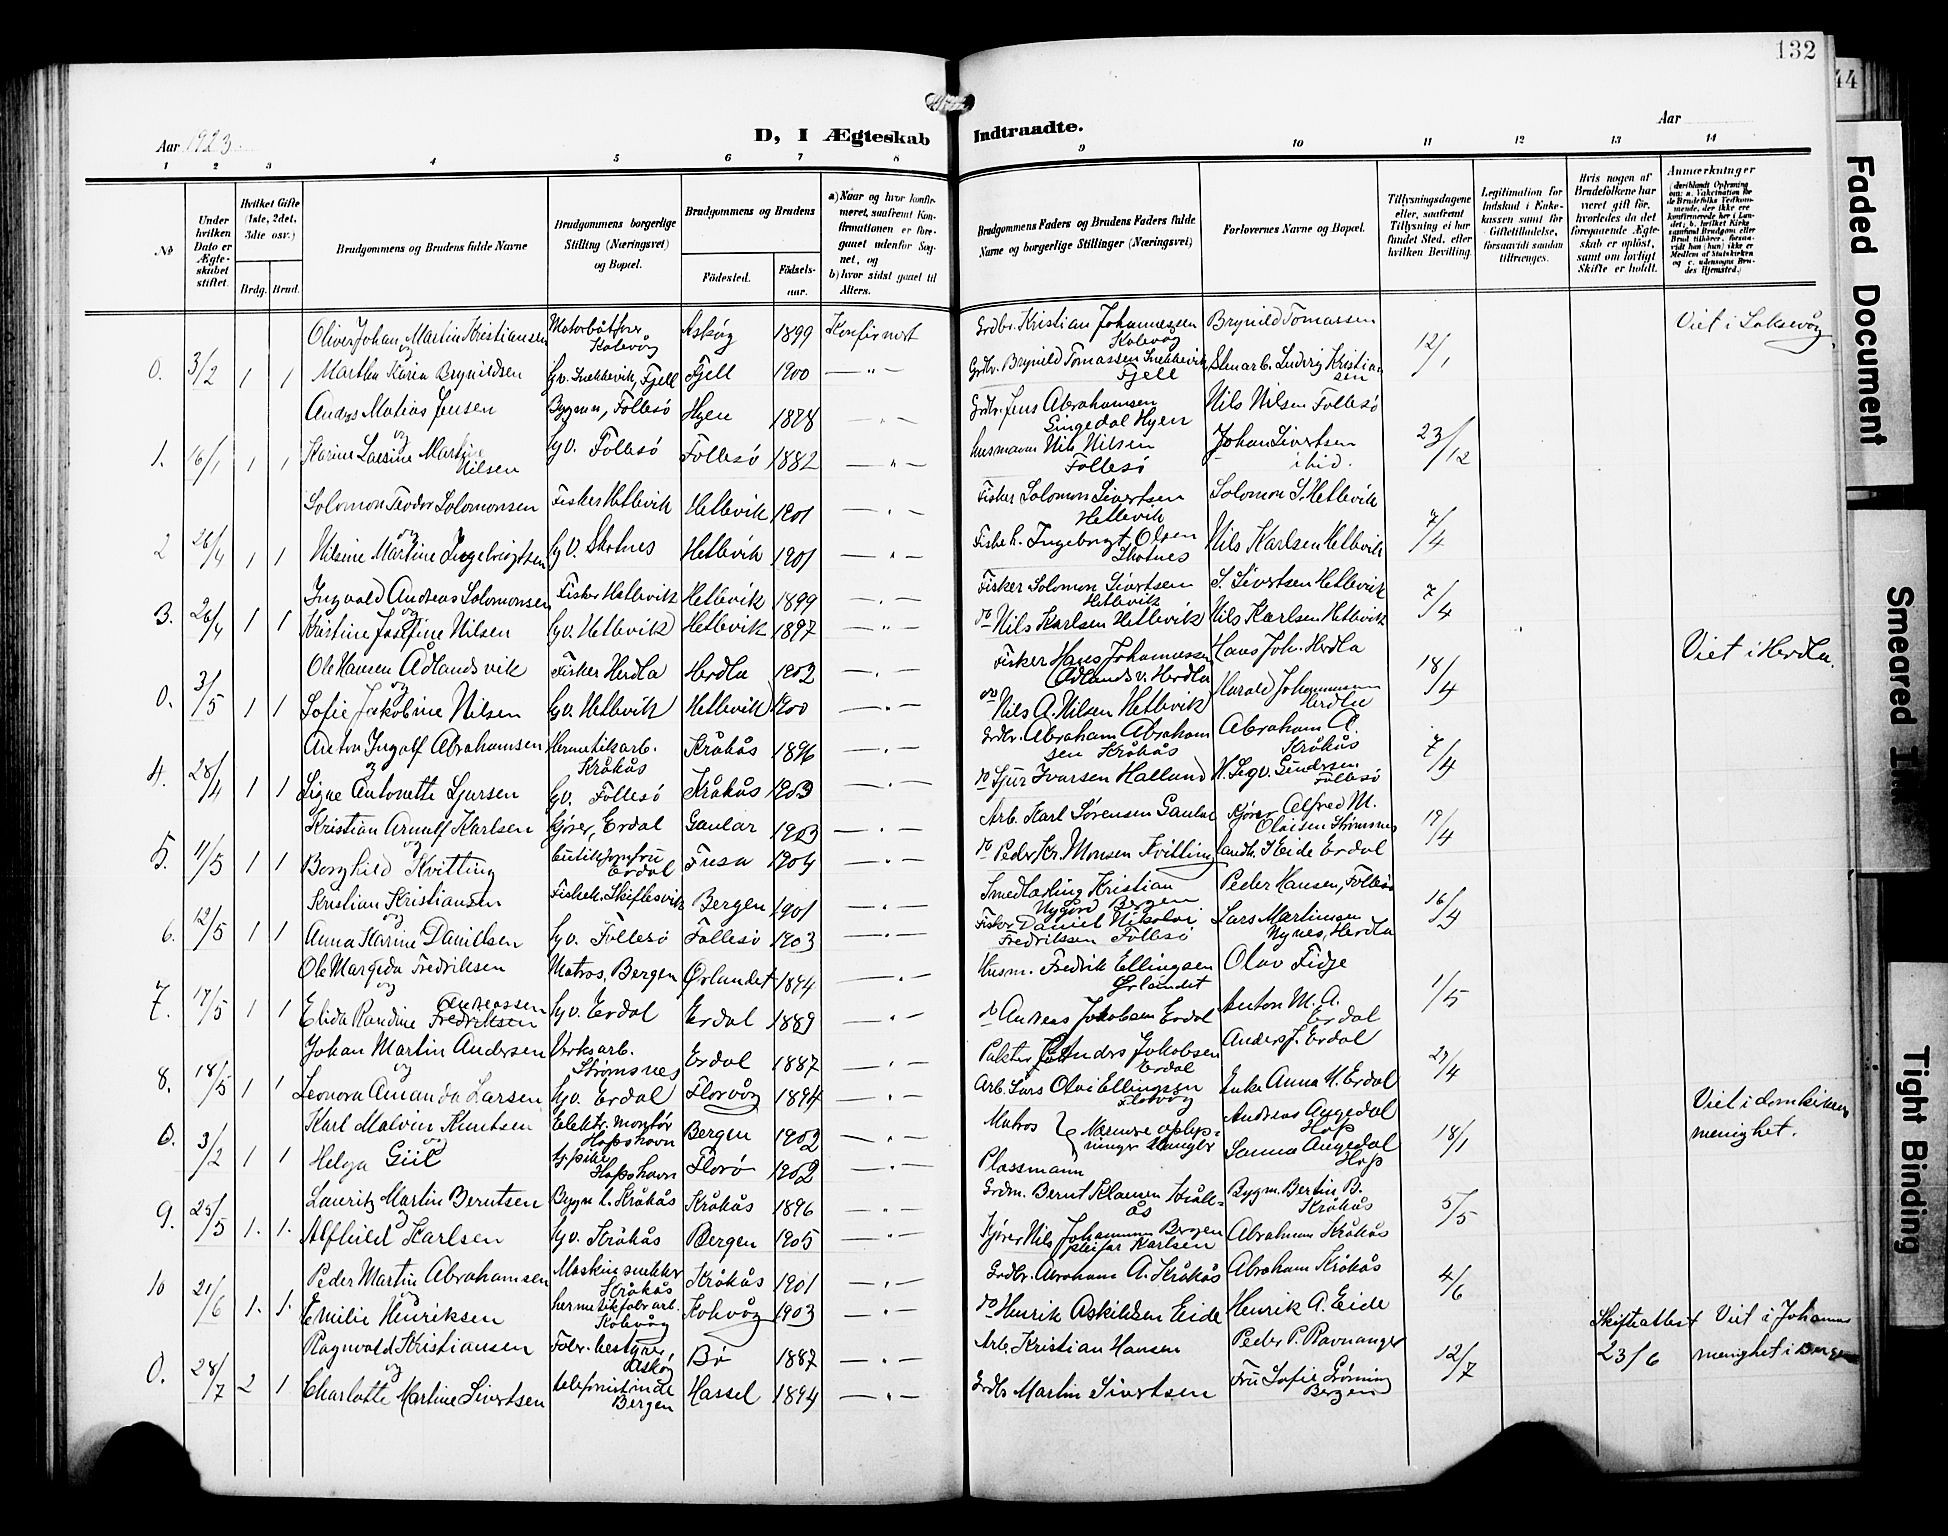 132
44
Aar 1923
D, I Ægteskab Indtraadte.
Aar
1 2 3 4 5 6 7 8 9 10 11 12 13 14
No
Under hvilken Dato er Ægteskabet stiftet.
Hvilket Gifte (1ste, 2det, 3die osv.)
Brdg. Brud.
Brudgommens og Brudens fulde Navne
Brudgommens borgerlige Stilling (Næringsvei) og Bopæl.
Brudgommens og Brudens
Födested. Födsels-aar.
a) Naar og hvor konfirmeret, saafremt Konfirmationen er foregaaet udenfor Sognet, og
b) hvor sidst gaaet til Alters.
Brudgommens Faders og Brudens Faders fulde Navne og borgerlige Stillinger (Næringsvei)
Forlovernes Navne og Bopæl.
Tillysningsdagene eller, saafremt Tillysning ei har fundet Sted, efter hvilken Bevilling.
Legitimation for Indskud i Enkekassen samt for Giftetilladelse, forsaavidt saadan tiltrænges.
Hvis nogen af Brudefolkene har været gift för, hvorledes da det foregaaende Ægteskab er oplöst, samt om lovligt Skifte er holdt.
Anmerkninger
Oliver Johan Martin Kristiansen Motorbåtfører Kolevåg Askøy 1899 Konfirmert Grdbr. Kristian Johannessen Kolevåg Brynild Tomassen Viet i Laksevåg
0. 3/2 1 1 og 12/1
Martha Karia Brynildsen Gv. Snekkevik, Fjell Fjell 1900 —"— Grdbr. Brynild Tomassen Snekkevik Fjell Ludvig Kristiansen
Anders Matias Jensen Bygm., Follesø Hyen 1878 —"— Grdbr. Jens Abrahamsen Gingedal Hyen Nils Nilsen Follesø
1. 16/1 1 1 og 23/12
Karine Lavine Martine Nilsen Gv. Follesø Follesø 1882 —"— husmann Nils Nilsen Follesø Johan Sivertsen ibid.
Solomon Teodor Solomonsen Fisker Hetlevik Hetlevik 1901 —"— Fisker Solomon Sivertsen Hetlevik Solomon S. Hetlevik
2 26/4 1 1 og 7/4
Nilsine Martine Ingebrigtsen Gv. Skotnes Hetlevik 1901 —"— Fisker Ingebrigt Olsen Skotnes Nils Karlsen Hetlevik
Ingvald Andreas Solomonsen Fisker Hetlevik Hetlevik 1899 —"— Fisker Solomon Sivertsen Hetlevik S. Sivertsen Hetlevik
3. 26/4 1 1 og 7/4
Kristine Josefine Nilsen Gv. Hetlevik Hetlevik 1897 —"— do Nils Karlsen Hetlevik Nils Karlsen Hetlevik
Ole Hansen Ådlandsvik Fisker Herdla Herdla 1902 —"— Fisker Hans Johannessen Ådlandsv. Herdla Hans Joh. Herdla Viet i Herdla.
0. 3/5 1 1 og 18/4
Sofie Jakobine Nilsen Gv. Hetlevik Hetlevik 1900 —"— do Nils A. Nilsen Hetlevik Harald Johannessen Herdla
Anton Ingolf Abrahamsen Hermetikarb. Kråkås Kråkås 1896 —"— Grdbr. Abraham Abrahamsen Kråkås Abraham A. Kråkås
4. 28/4 1 1 og 7/4
Signe Antonette Sjursen Gv. Follesø Kråkås 1903 —"— do Sjur Ivarsen Halland Follesø
Kristian Arnulf Karlsen Kjører, Erdal Gaular 1903 —"— Arb. Karl Sørensen Gaular Kjører Alfred M. Olaisen Strømsnes
5. 11/5 1 1 og 19/4
Borghild Kvitting Butikjomfru Erdal Fusa 1904 —"— do Peder Kr. Monsen Kvitting Landh. I. Eide Erdal
Kristian Kristiansen Fisker Skiftesvik Bergen 1901 —"— Smedlærling Kristian Nygård Bergen Peder Hansen, Follesø
6. 12/5 1 1 og 16/4
Anna Karine Danielsen Gv. Follesø Follesø 1903 —"— Fisker Daniel Nikolai Fredriksen Follesø Lars Martinsen Nynes, Herdla
Ole Margido Fredriksen Matros, Bergen Ørlandet 1874 —"— Husm. Fredrik Ellingsen Ørlandet Olav Fidje
7. 17/5 1 1 og 1/5
Elida Randine Fredriksen Andreassen Gv. Erdal Erdal 1889 —"— do Andreas Jakobsen Erdal Anton M. A. Erdal
Johan Martin Andersen Verksarb. Strømsnes Erdal 1887 —"— Anders Jakobsen Erdal Anders J. Erdal
8. 18/5 1 1 og 29/4
Leonora Amanda Larsen Gv. Erdal Florvåg 1894 —"— Arb. Lars Olai Ellingsen Florvåg Enke Anna M. Erdal
Karl Malvin Knutsen Elektr. montør Hopshavn Bergen 1902 —"— Matros Nærmere oplysninger mangler Andreas Augedal Hop Viet i domkirkens menighet.
0. 3/2 1 1 og 18/1
Helga Giil Gpike Hopshavn Florø 1902 Plassmann Sanna Augedal Hop
Lauritz Martin Berntsen Bygm. l. Kråkås Kråkås 1896 —"— Grdm. Bernt Klausen Kråkås Bygm. Bertin B. Kråkås
9. 25/5 1. 1. og 5/5
Alfhild Karlsen Gv. Kråkås Bergen 1905 —"— Kjører Nils Johannes Bergen pleiefar Karlsen Abraham Kråkås
Peder Martin Abrahamsen Maskinsnekker Kråkås Kråkås 1901 —"— Grdbr. Abraham A. Kråkås Abraham Kråkås
10 21/6 1. 1. og 4/6
Emilie Henriksen hermetikfabr. arb. Kolevåg Kolevåg 1903 —"— do Henrik Askildsen Eide Henrik A. Eide
Ragnvald Kristiansen Fabr. bestyrer, Askøy Bø 1887 —"— Arb. Kristian Hansen Peder P. Ravnanger Skifteattest 23/6 Viet i Johannes menighet i Bergen
0. 28/7 2 1 og 12/7
Charlotte Martine Sivertsen telefonistinde Bergen Hassel 1894 —"— Grdbr Martin Sivertsen Fru Sofie Grøning Bergen
Faded Document
Smeared Ink
Tight Binding